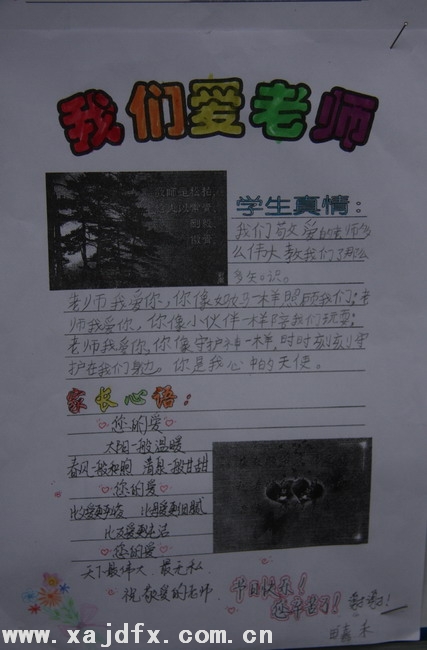 我们爱老师
学生真情：
我们敬爱的老师多
么伟大教我们了那么
多知识。
老师我爱你，你像妈妈一样照顾我们；老
师我爱你，你像小伙伴一样陪我们玩耍；
老师我爱你，你像守护神一样，时时刻刻守
护在我们身边。你是我心中的天使。
家长心语：
您的爱
太阳一般温暖
春风一般和煦 清泉一般甘甜
您的爱
比父爱更严峻 比母爱更细腻
比友爱更纯洁
您的爱
天下最伟大 最无私
祝敬爱的老师
节日快乐！
您辛苦了！谢谢！
www.xajdfx.com.cn